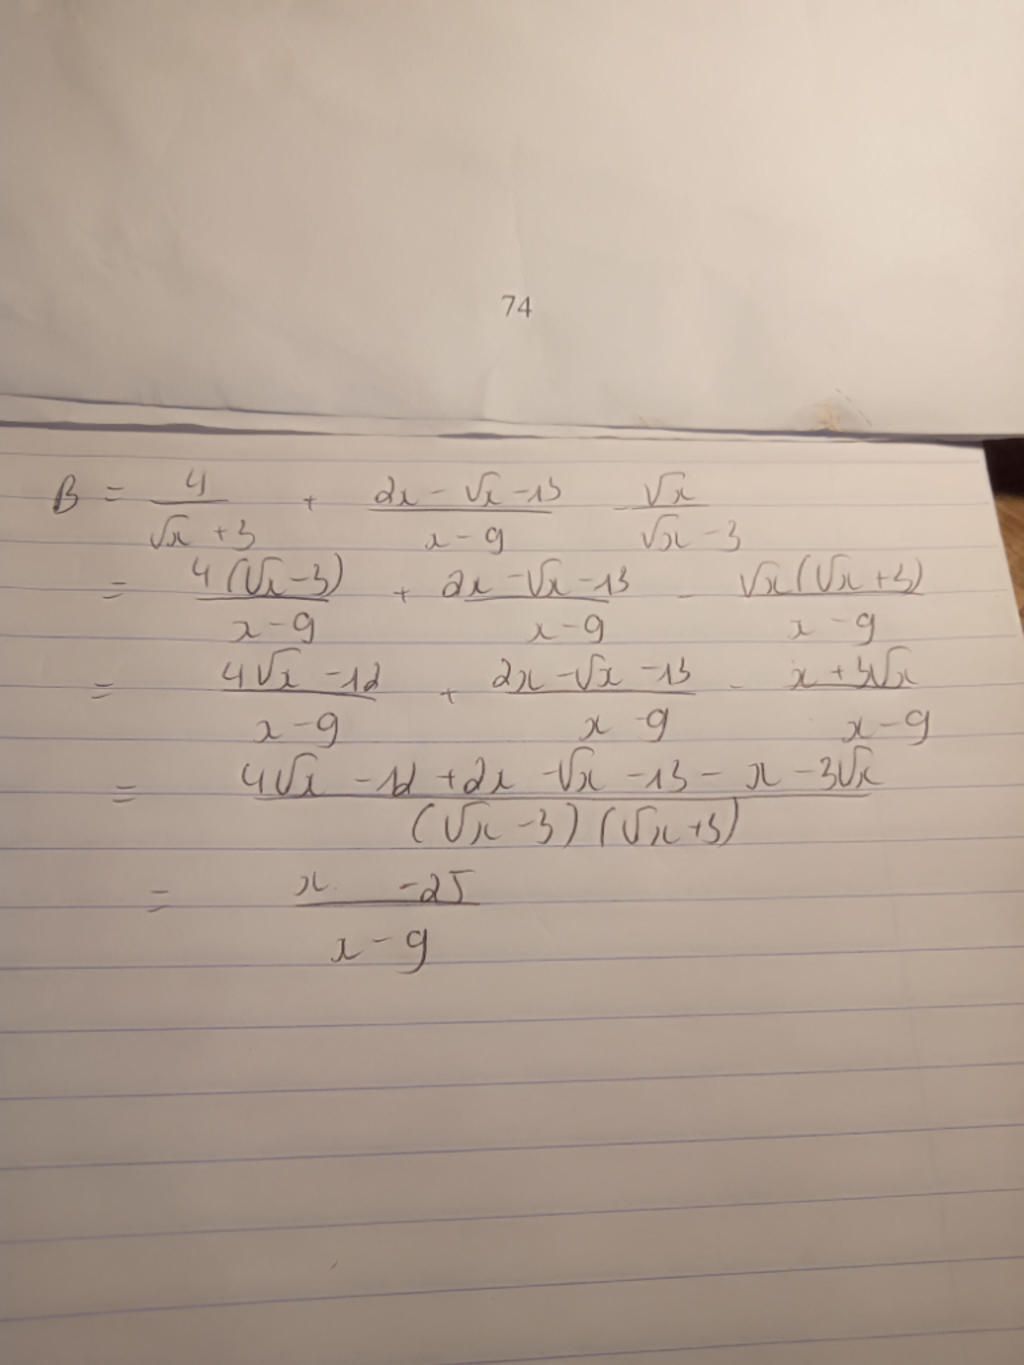 74
B = 4/(√x + 3) + (2x - √x - 13)/(x - 9) √x/(√x - 3)
= 4(√x - 3)/(x - 9) + (2x - √x - 13)/(x - 9) - √x(√x + 3)/(x - 9)
= (4√x - 12)/(x - 9) + (2x - √x - 13)/(x - 9) - (x + 3√x)/(x - 9)
= (4√x - 12 + 2x - √x - 13 - x - 3√x)/((√x - 3)(√x + 3))
= (x - 25)/(x - 9)